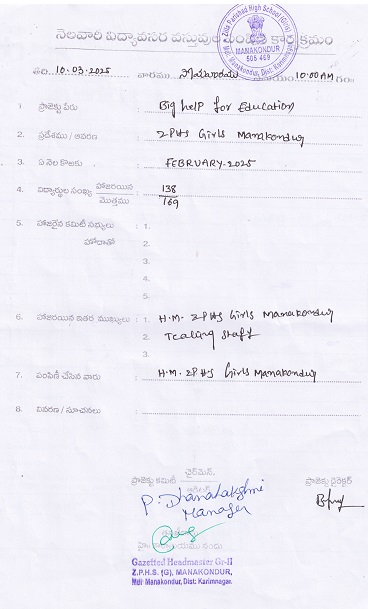 Zilla Parishad High School (Girls)
MANAKONDUR
505 469
Mdl: Manakondur, Dist: Karimnagar.
నెలవారి విద్యావసర వస్తువుల పంపిణి కార్యక్రమం
తేది 10-03-2025 వారము సోమవారము సమయం 10:00AM గం॥
1 ప్రాజెక్టు పేరు : Big help for Education
2. ప్రదేశము / ఆవరణ : ZPHS Girls Manakondur
3. ఏ నెల కొఱకు : FEBRUARY-2025
4. విద్యార్థుల సంఖ్య హాజరయిన : 138
మొత్తము 169
5. హాజరైన కమిటీ సభ్యులు : 1.
హోదాతో 2.
3.
4.
5.
6. హాజరయిన ఇతర ముఖ్యులు : 1. H.M. ZPHS Girls Manakondur
2. Teaching staff
3.
7. పంపిణీ చేసిన వారు : H.M. ZPHS Girls Manakondur
8. వివరణ / సూచనలు :
చైర్మెన్,
ప్రాజెక్టు కమిటీ ప్రాజెక్టు డైరెక్టర్
P. Dhanalakshmi
Manager
Gazetted Headmaster Gr-II
Z.P.H.S. (G), MANAKONDUR,
Mdl: Manakondur, Dist: Karimnagar.